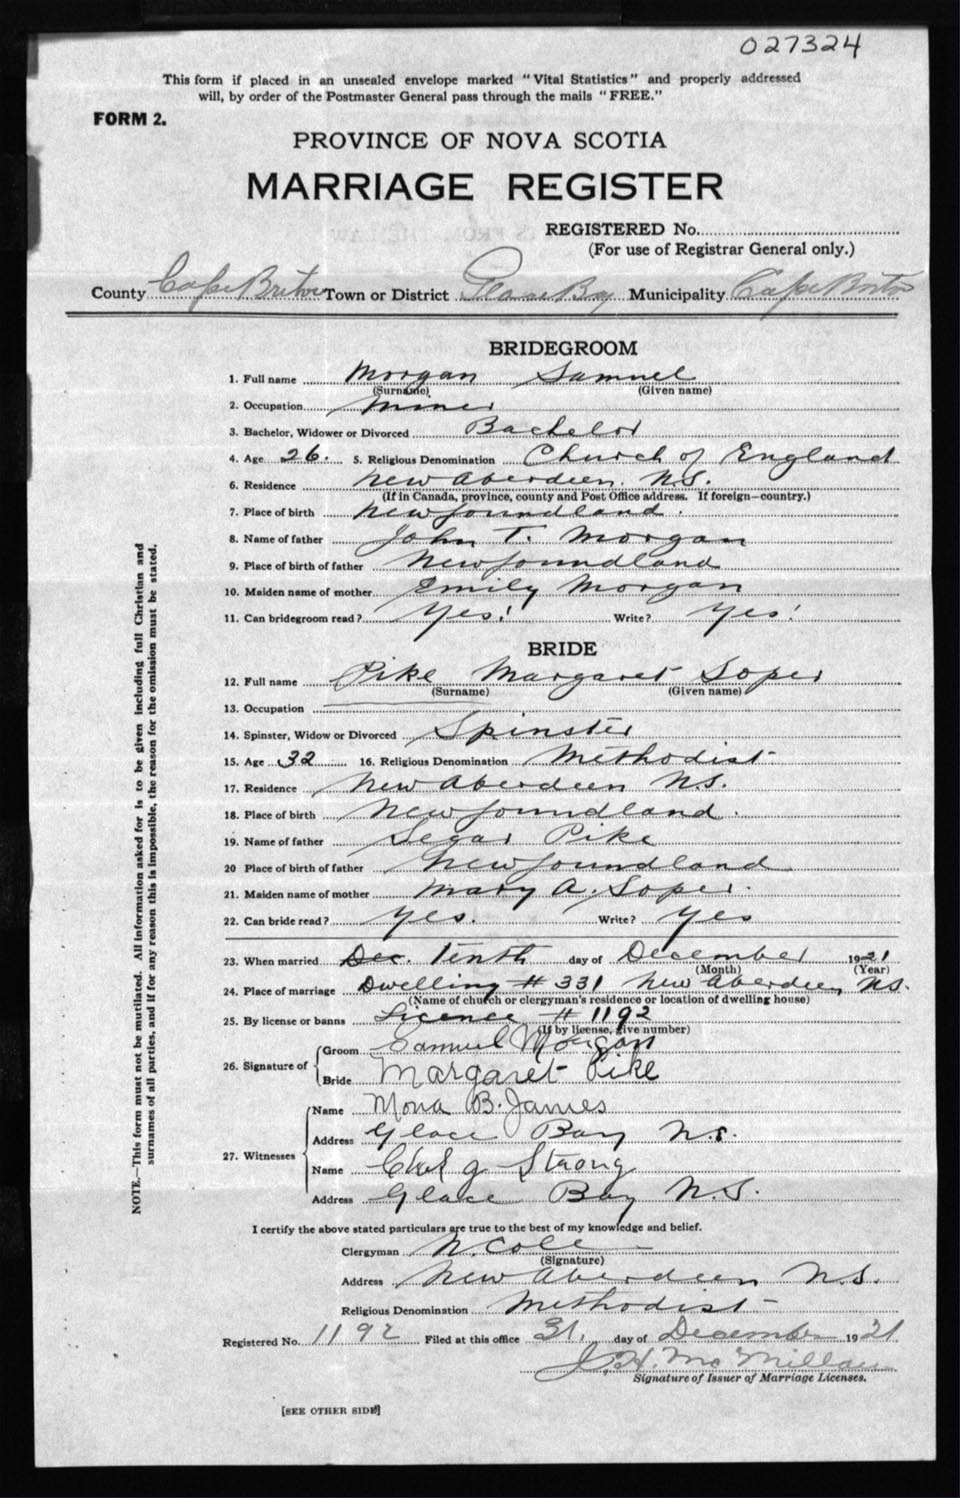 027324
This form if placed in an unsealed envelope marked "Vital Statistics" and properly addressed
will, by order of the Postmaster General pass through the mails "FREE."
FORM 2.
PROVINCE OF NOVA SCOTIA
MARRIAGE REGISTER
REGISTERED No.
(For use of Registrar General only.)
County Cape Breton Town or District Glace Bay Municipality Cape Breton
BRIDEGROOM
1. Full name Morgan Samuel
(Surname) (Given name)
2. Occupation Miner
3. Bachelor, Widower or Divorced Bachelor
4. Age 26. 5. Religious Denomination Church of England
6. Residence New Aberdeen. N.S.
(If in Canada, province, county and Post Office address. If foreign—country.)
7. Place of birth Newfoundland.
8. Name of father John T. Morgan
9. Place of birth of father Newfoundland
10. Maiden name of mother Emily Morgan
11. Can bridegroom read? Yes! Write? Yes!
BRIDE
12. Full name Pike Margaret Soper
(Surname) (Given name)
13. Occupation
14. Spinster, Widow or Divorced Spinster
15. Age 32 16. Religious Denomination Methodist
17. Residence New Aberdeen N.S.
18. Place of birth Newfoundland.
19. Name of father Segar Pike
20 Place of birth of father Newfoundland
21. Maiden name of mother Mary A. Soper.
22. Can bride read? Yes. Write? Yes
23. When married Dec. Tenth day of December 1921
(Month) (Year)
24. Place of marriage Dwelling # 331 New Aberdeen N.S.
(Name of church or clergyman's residence or location of dwelling house)
25. By license or banns Licence # 1192
(If by license, give number)
26. Signature of Groom Samuel Morgan
Bride Margaret Pike
27. Witnesses Name Mona B. James
Address Glace Bay N.S.
Name Chas G Strong
Address Glace Bay N.S.
I certify the above stated particulars are true to the best of my knowledge and belief.
Clergyman N. Cole
(Signature)
Address New Aberdeen N.S.
Religious Denomination Methodist
Registered No. 1192 Filed at this office 31. day of December 1921
J. H. McMillan
Signature of Issuer of Marriage Licenses.
[SEE OTHER SIDE]
NOTE.—This form must not be mutilated. All information asked for is to be given including full Christian and
surnames of all parties, and if for any reason this is impossible, the reason for the omission must be stated.